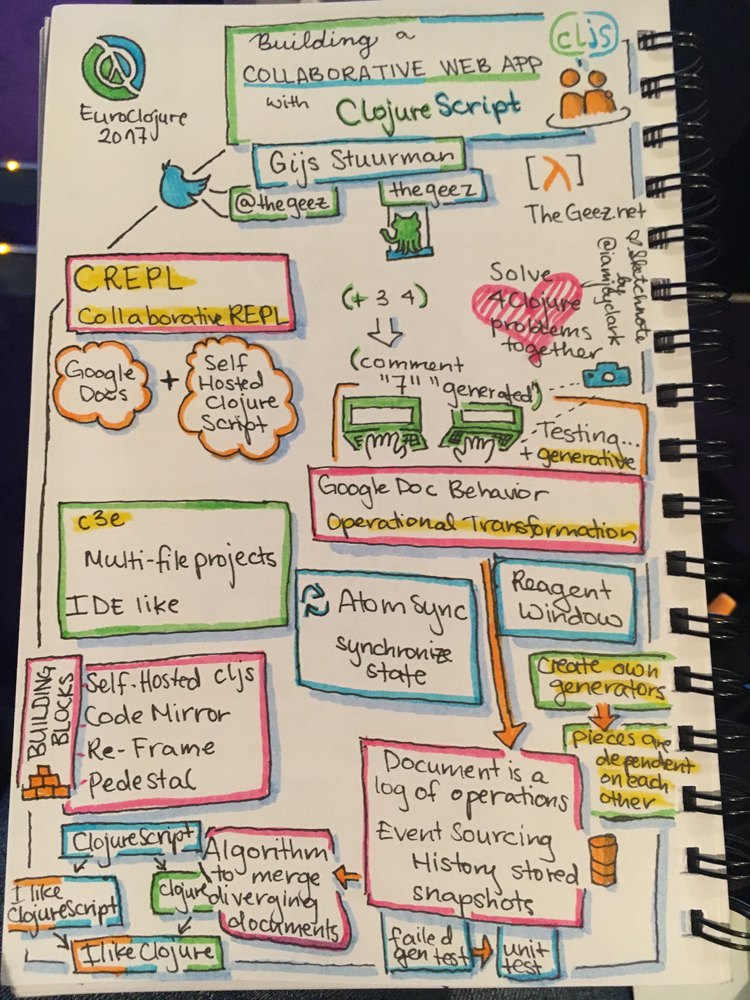 EuroClojure
2017
Building a
COLLABORATIVE WEB APP
with ClojureScript
cljs
Gijs Stuurman
@thegeez
thegeez
[λ]
TheGeez.net
♡ Sketchnote
by
@iamjdyclark
CREPL
Collaborative REPL
Google
Docs
+
Self
Hosted
Clojure
Script
(+ 3 4)
(comment
"7" "generated")
Solve
4Clojure
problems
together
Testing...
+ generative
Google Doc Behavior
Operational Transformation
c3e
Multi-file projects
IDE like
Atom Sync
synchronize
state
Reagent
Window
Create own
generators
pieces are
dependent
on each
other
BUILDING
BLOCKS
Self-Hosted cljs
Code Mirror
Re-Frame
Pedestal
Document is a
log of operations
Event Sourcing
History stored
snapshots
Algorithm
to merge
diverging
documents
ClojureScript
I like
ClojureScript
Clojure
I like Clojure
failed
gen test
unit
test